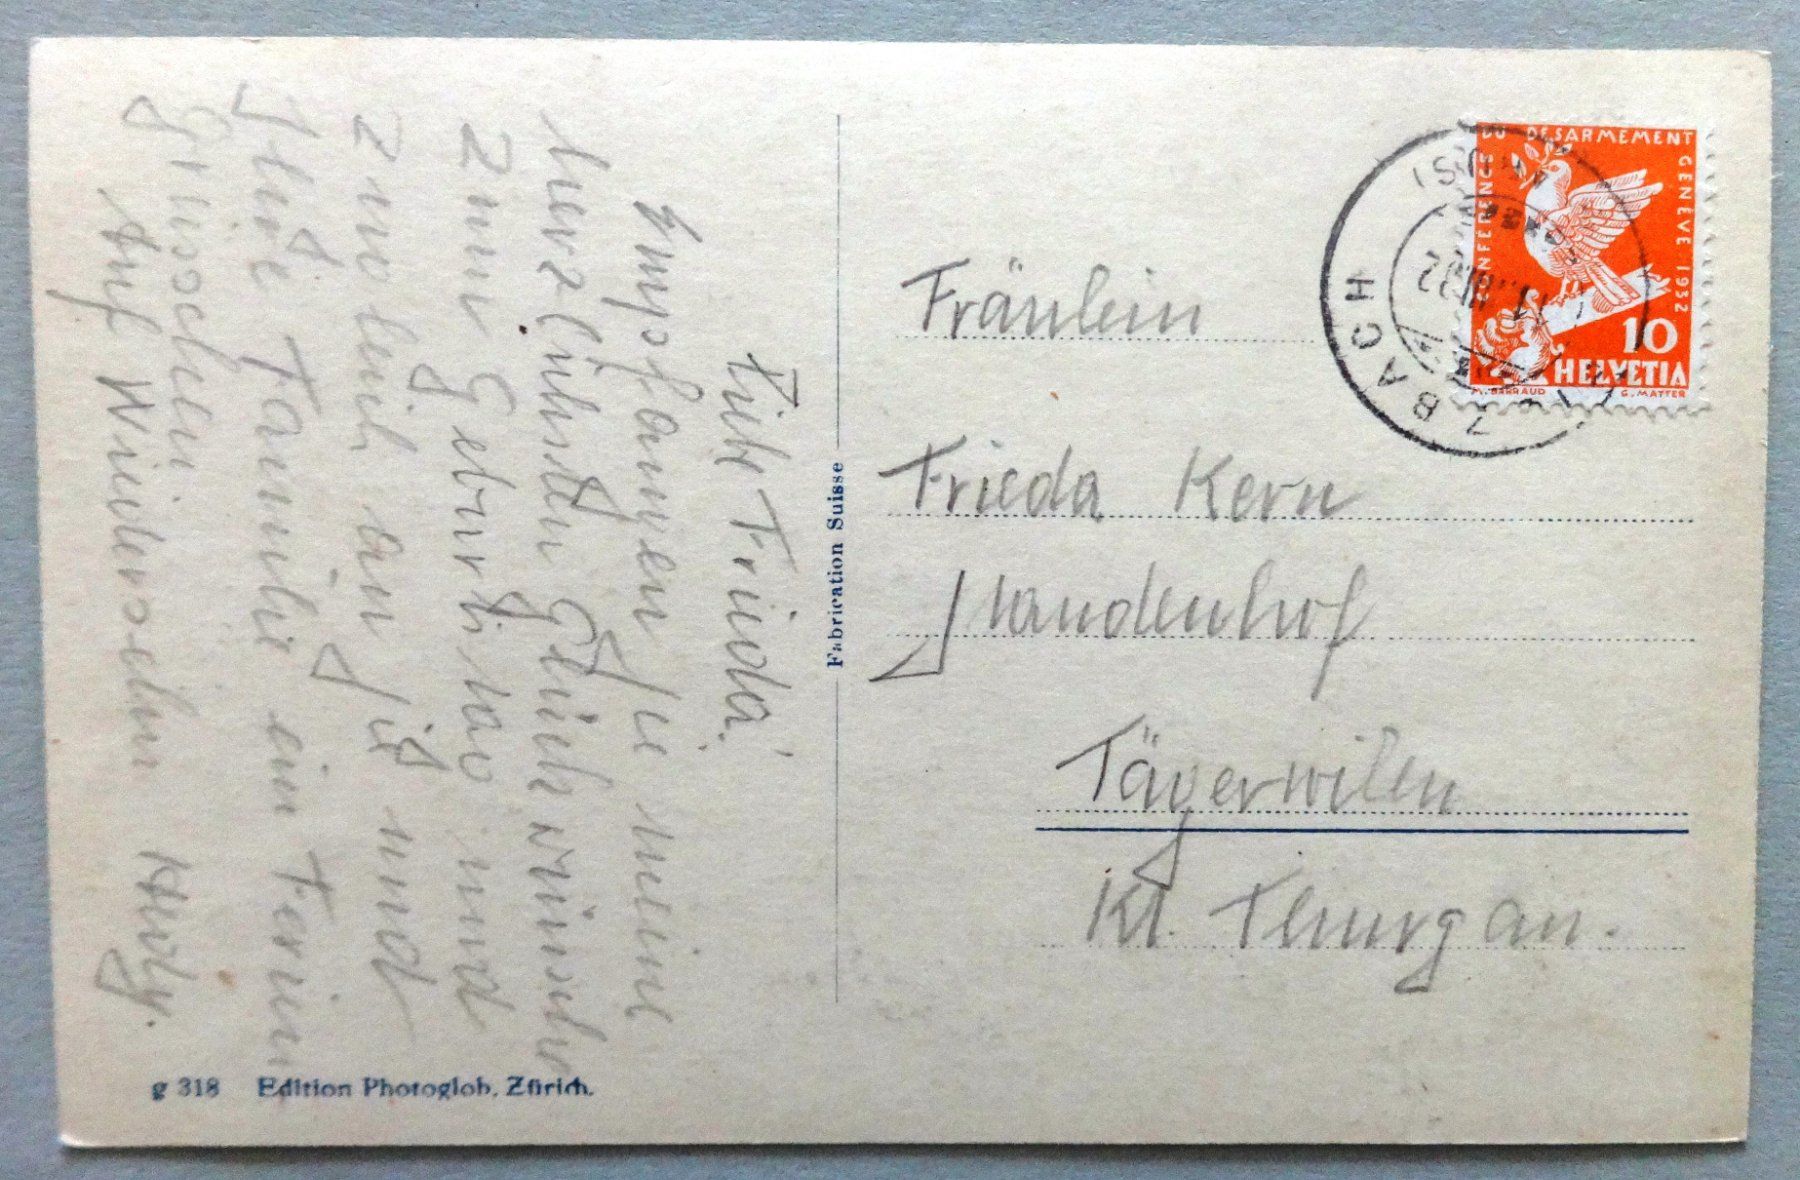 Liebe Frieda!
Empfangen Sie meine
herzlichsten Glückwünsche
zum Geburtstag und
zugleich an Sie und
Ihre Familie ein Ferien
Grüsschen
Auf Wiedersehn Hedy.
Fabrication Suisse
g 318 Edition Photoglob, Zürich.
CONFÉRENCE DU DÉSARMEMENT GENÈVE 1932
10
HELVETIA
M. BARRAUD G. MATTER
ZBACH
Fräulein
Frieda Kern
Tägerwilen
Kt. Thurgau.